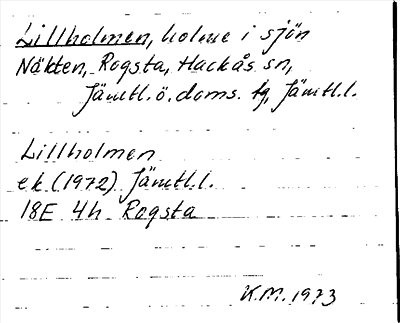 Lillholmen, holme i sjön
Näkten, Rogsta, Hackås sn,
Jämtl.ö.doms. tg, Jämtl.l.
Lillholmen
ek (1972) Jämtl.l.
18E 4h Rogsta
K.M. 1973